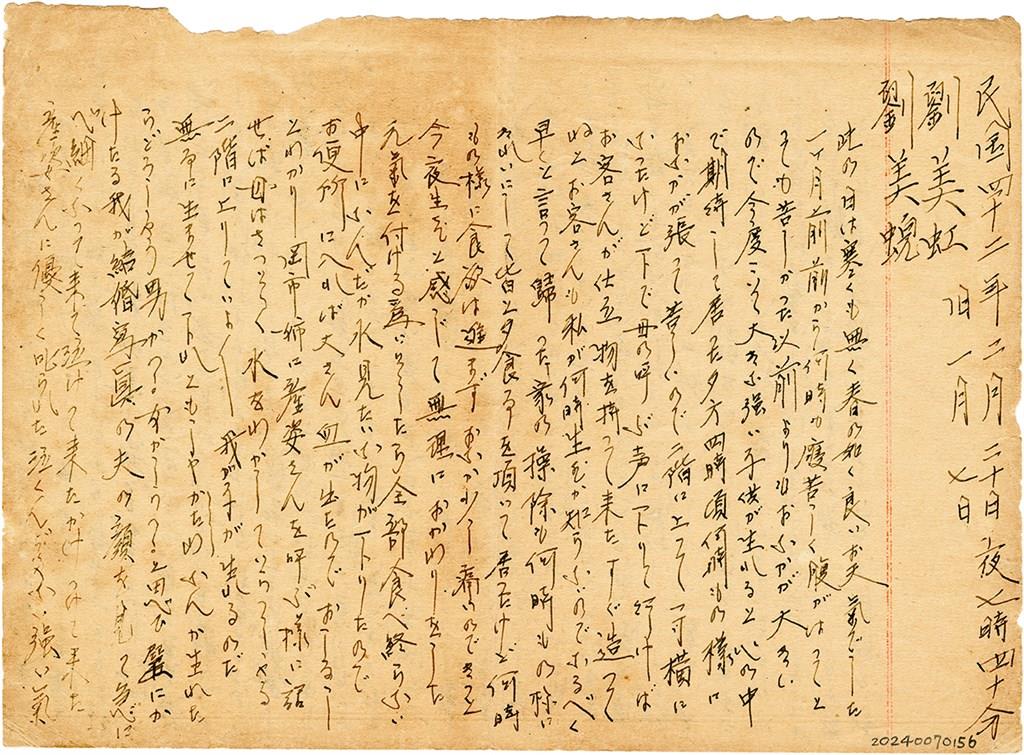 民国四十二年二月二十日夜七時四十分
劉美虹 旧一月七日
劉美蜺
此の日は寒くも無く春の如く良いお天気でした
一ヶ月前前から何時も度苦しく腹がはってと
そても苦しかった以前よりもおなかが大きし
ので今度こそ大きな強い子供が生れると心の中
で期待して居た夕方四時頃何時もの様に
おなかが張って苦しいので二階に上って一寸横に
なったけど下で母の呼ぶ声に下りて行けば
お客さんが仕立物を持って来たすぐ造って
ぬとお客さんも私が何時生むか知らないのでなるべく
早くと言って帰った家の掃除も何時もの様に
きれいにして皆と夕食を頂いて居たけど何時
もの様に食欲は進まず おなか少し痛いのできっと
今夜生むと感づて無理におかわりをした
元気を付ける為 いそしたら全部食べ終らない
中に へんだが水見たいな物が下りたので
お便所に入れば大さん血が出たので
とわかり 岡市姉に産婆さんを呼ぶ様に話
せば 母はさっそく水をわかしていらっしゃる
二階に上りていよ〱 我が子が生れるのだ
無事に生ませて下れ
らどうしよう男かつる女かしらつると思ひ 壁にか
けたる我が結婚写真の夫の顔を見て急に
心細くなって来て泣けて来た
産婆さんに優しく叱られた 泣くんでない、強い気
20240070156